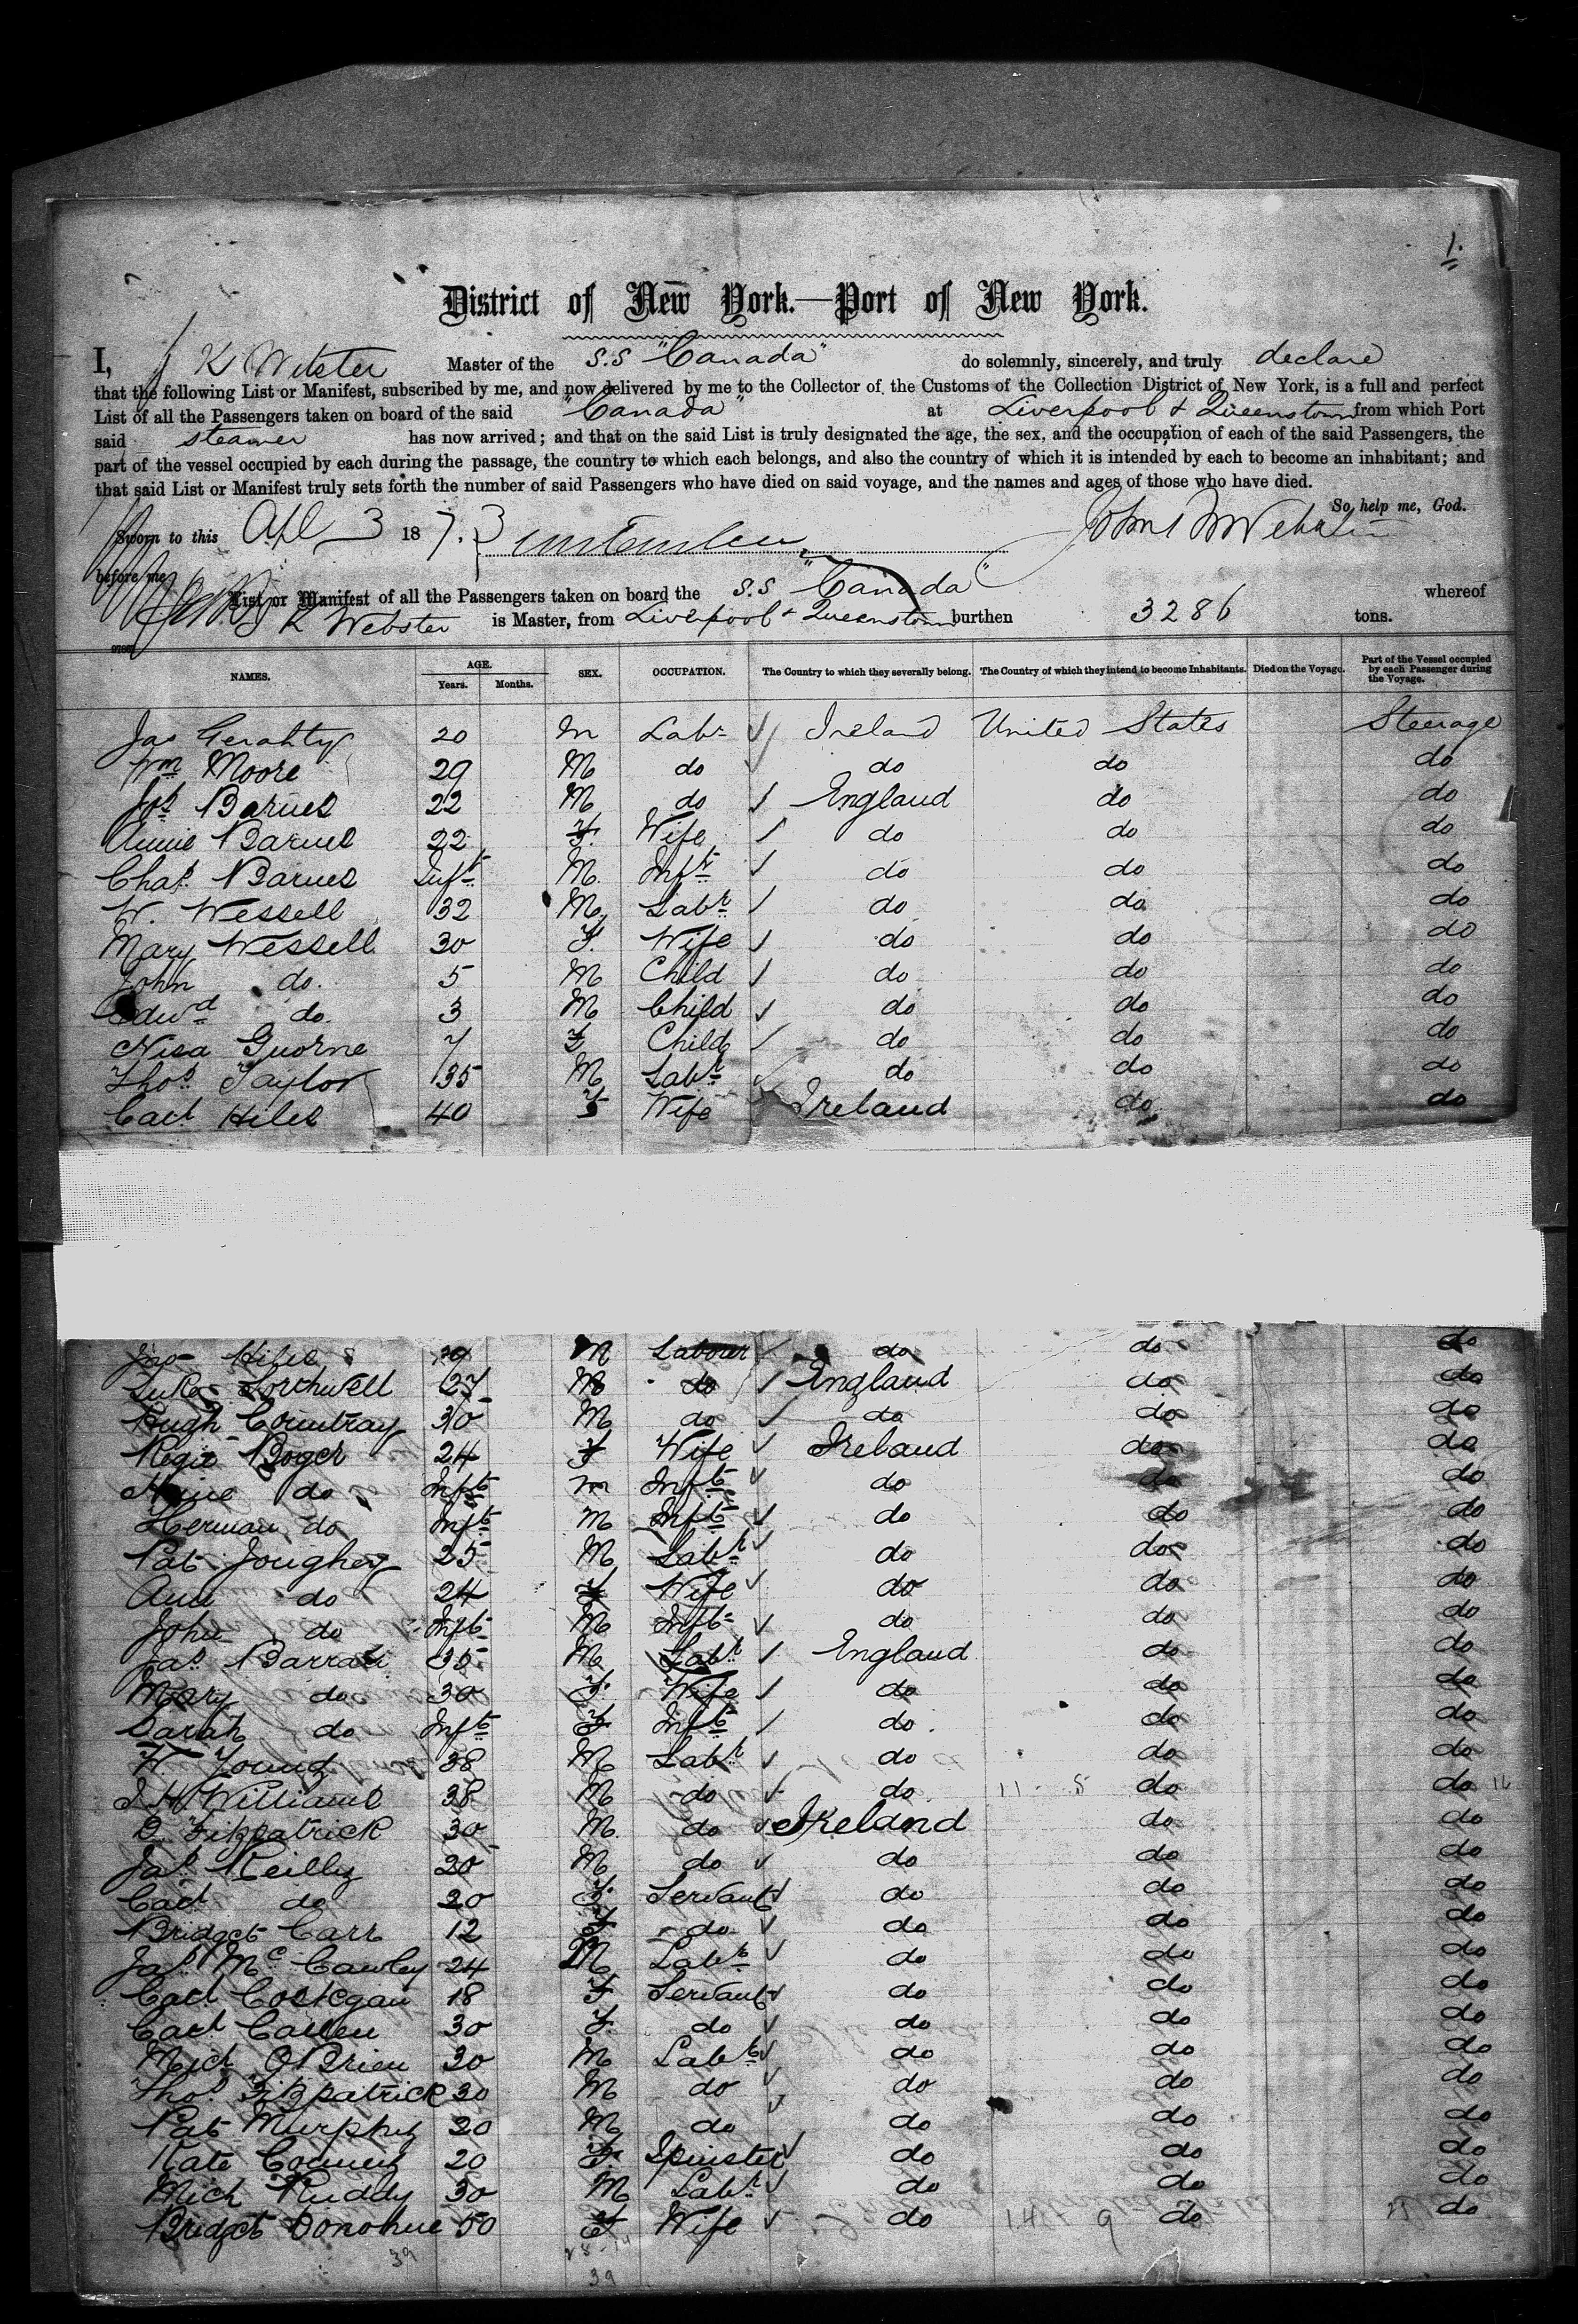 1.
District of New York.—Port of New York.
I, J K Webster Master of the S.S "Canada" do solemnly, sincerely, and truly declare
that the following List or Manifest, subscribed by me, and now delivered by me to the Collector of the Customs of the Collection District of New York, is a full and perfect
List of all the Passengers taken on board of the said "Canada" at Liverpool & Queenstown from which Port
said steamer has now arrived; and that on the said List is truly designated the age, the sex, and the occupation of each of the said Passengers, the
part of the vessel occupied by each during the passage, the country to which each belongs, and also the country of which it is intended by each to become an inhabitant; and
that said List or Manifest truly sets forth the number of said Passengers who have died on said voyage, and the names and ages of those who have died.
So help me, God.
Sworn to this Apl 3 187.3 John Webster
before me
List or Manifest of all the Passengers taken on board the S.S "Canada" whereof
J K Webster is Master, from Liverpool & Queenstown burthen 3286 tons.
NAMES. AGE. Years. Months. SEX. OCCUPATION. The Country to which they severally belong. The Country of which they intend to become Inhabitants. Died on the Voyage. Part of the Vessel occupied by each Passenger during the Voyage.
Jas Gerahty 20 M Labr Ireland United States Steerage
Wm Moore 29 M do do do do
Jos Barnes 22 M do England do do
Annie Barnes 22 F. Wife do do do
Chas Barnes Inft M. Inft do do do
W. Wessell 32 M. Labr do do do
Mary Wessell 30 F. Wife do do do
John do. 5 M Child do do do
Edwd do. 3 M Child do do do
Nisa Guorne 7 F Child do do do
Thos Taylor 35 M Labr do do do
Cath Hiles 40 F Wife Ireland do do
Jno Hiles M Laborer do do do
Luke 27 M do England do do
Hugh Countray 30 M do do do do
Regie Boger 24 F Wife Ireland do do
do Inft M Inft do do do
Herman do Inft M Inft do do do
Pat Joughey 25 M Labr do do do
Ann do 24 F Wife do do do
John do Inft M Inft do do do
Jas 35 M Labr England do do
Mary do 30 F. Wife do do do
Sarah do Inft F Inft do do do
W Young 38 M Labr do do do
J H Williams 38 M do do 11 5 do do 16
D. Fitzpatrick 30 M. do Ireland do do
Jas Reilly 20 M do do do do
Cath do 20 F. Servant do do do
Bridget Carr 12 F do do do do
Jas McCawley 24 M Labr do do do
Cath Costegan 18 F Servant do do do
Cath Callen 30 F. do do do do
Mich OBrien 30 M Labr do do do
Thos Fitzpatrick 30 M do do do do
Pat Murphy 20 M do do do do
Kate 20 F. Spinster do do do
Mich Ruddy 30 M Labr do do do
Bridget Donohue 50 F Wife do 9 do do
39
39